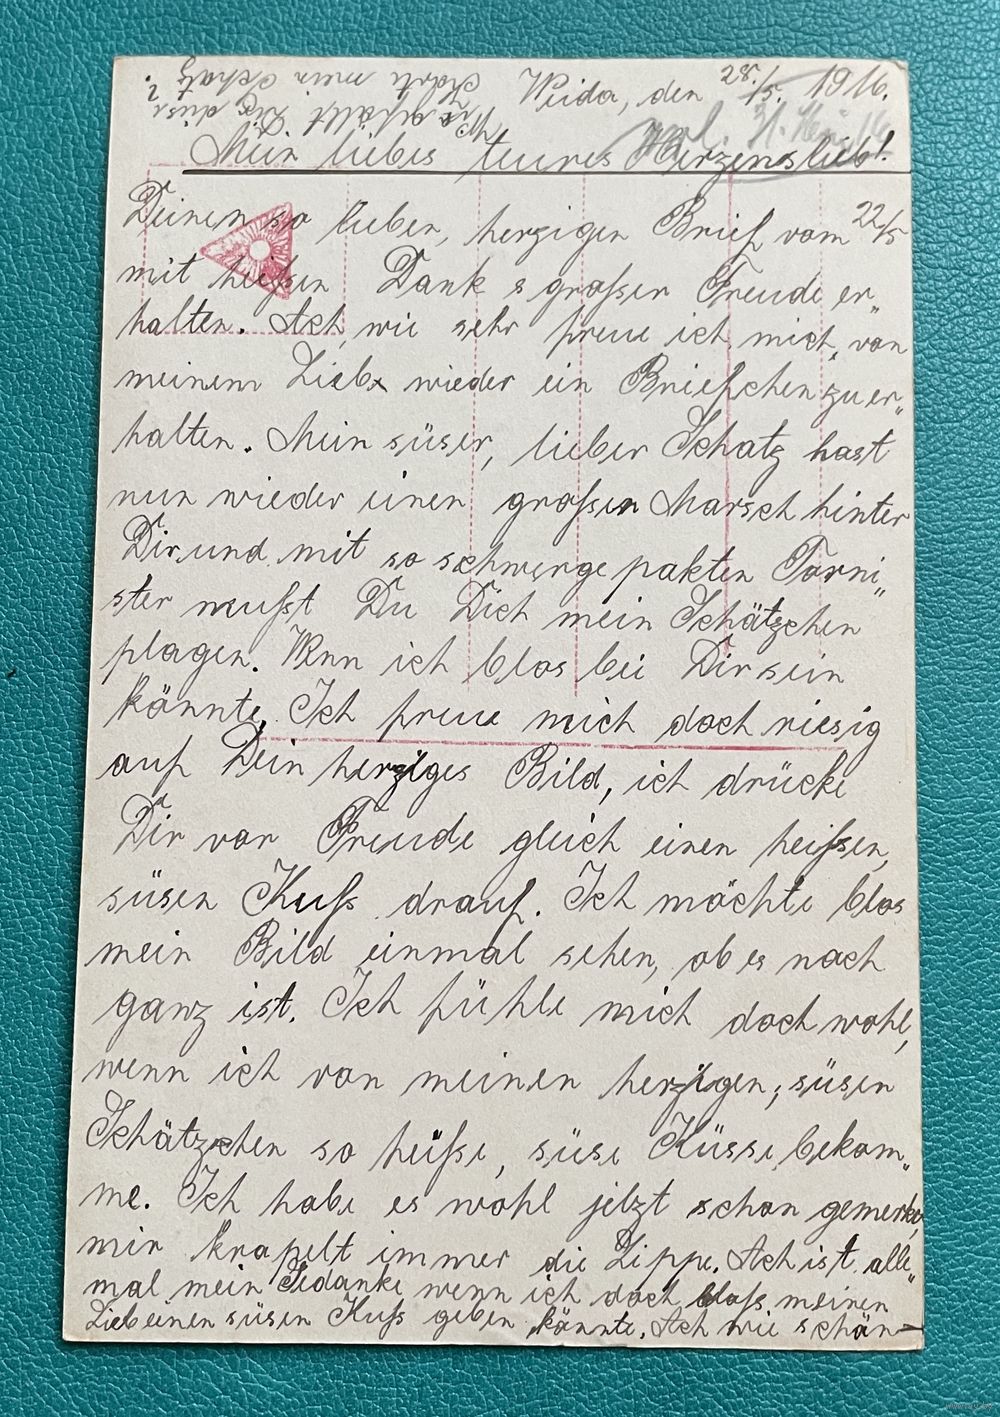 Wie gefällt Dir diese
Karte mein Schatz
?
Weida, den 28./5. 1916.
Mein liebes teures Herzenslieb!
Deinen so lieben, herzigen Brief vom 22/5
mit heißen Dank & großer Freude er„
halten. Ach, wie sehr freue ich mich, von
meinem Lieb wieder ein Briefchen zu er„
halten. Mein süser, lieber Schatz hast
nun wieder einen großen Marsch hinter
Dir und mit so schwergepakten Torni„
ster mußt Du Dich mein Schätzchen
plagen. Wenn ich blos bei Dir sein
könnte. Ich freue mich doch riesig
auf Dein herziges Bild, ich drücke
Dir vor Freude gleich einen heißen,
süsen Kuß drauf. Ich möchte blos
mein Bild einmal sehen, ob es noch
ganz ist. Ich fühle mich doch wohl,
wenn ich von meinen herzigen, süsen
Schätzchen so heiße, süse Küsse bekom„
me. Ich habe es wohl jetzt schon gemerkt,
mir krapelt immer die Lippe. Ach ist alle„
mal mein Gedanke wenn ich doch bloß meinen
Lieb einen süsen Kuß geben könnte. Ach wie schön